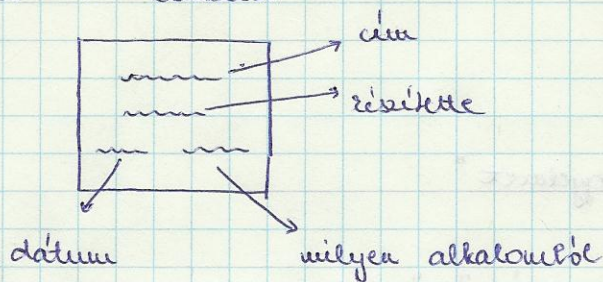 cím
készítette
dátum milyen alkalomból